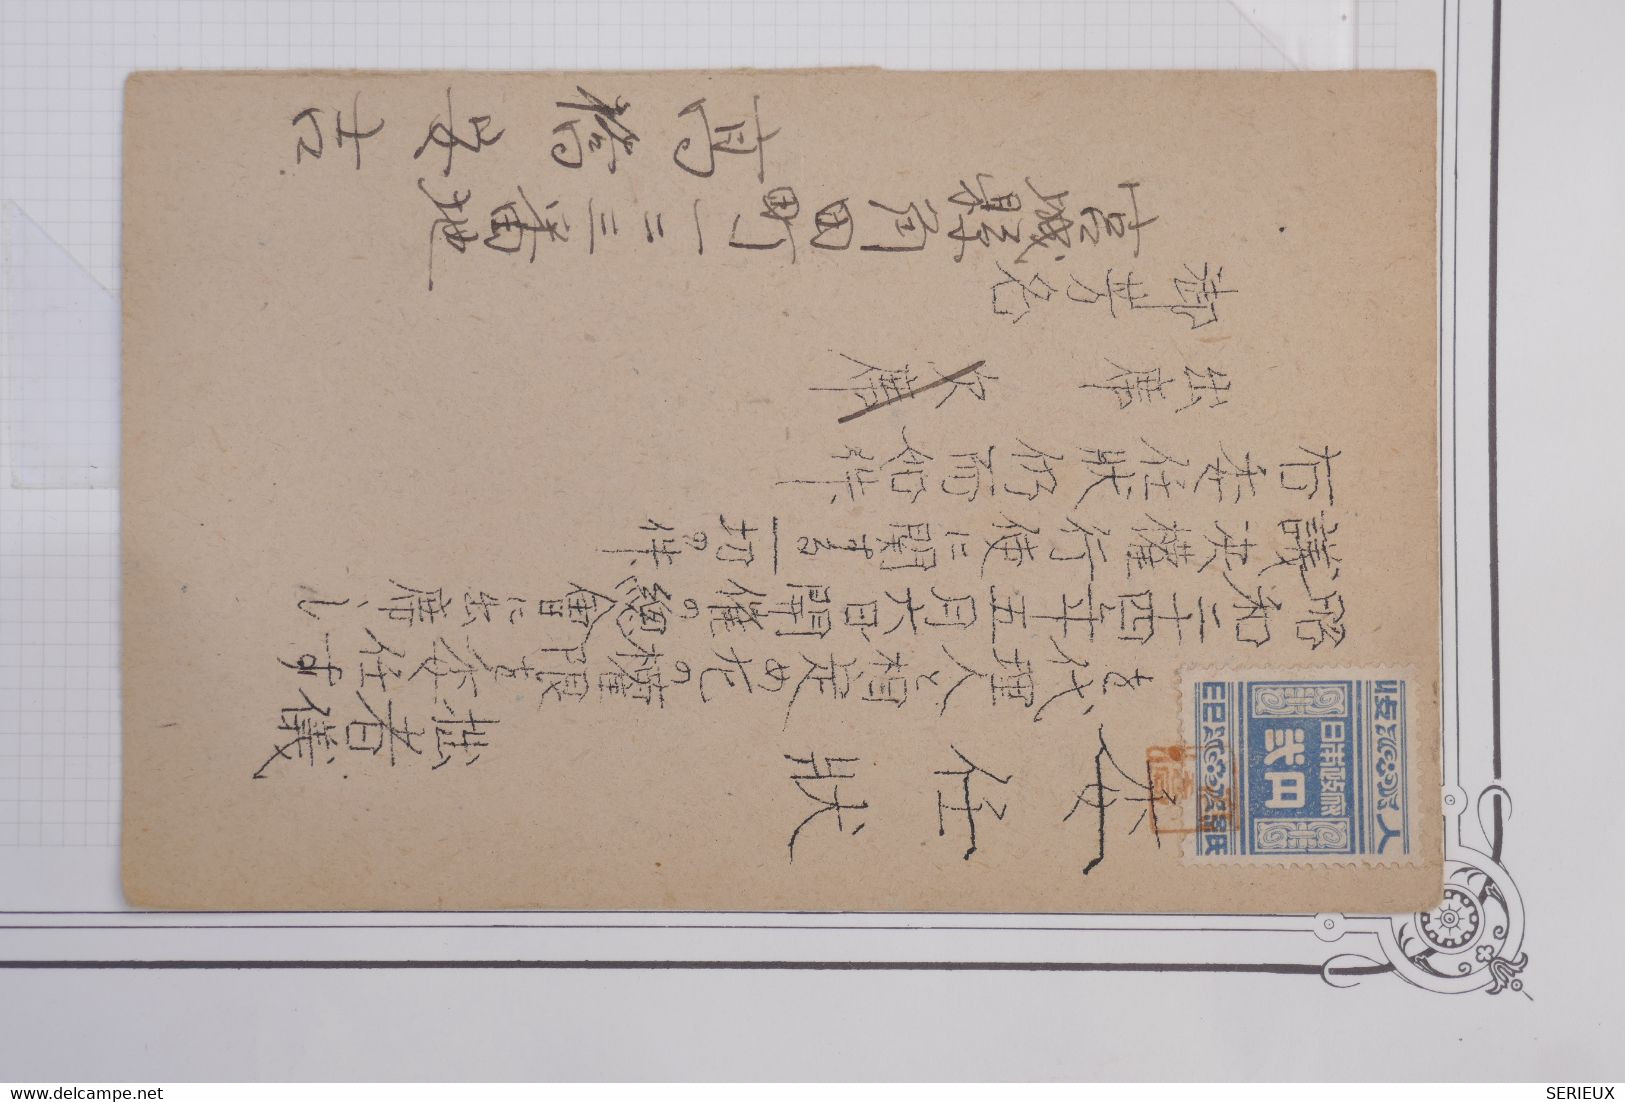 委任状
拙者儀
を代理人と相定め左の権限を委任す
昭和二十四年五月六日開催の総会に出席し
議決権行使に関する一切の件
右委任状仍而如件
出席 欠席
御芳名
宮城県角田町一二三番地
高橋安吉
収入印紙
日本政府
弐円
SERIEUX
delcampe.net